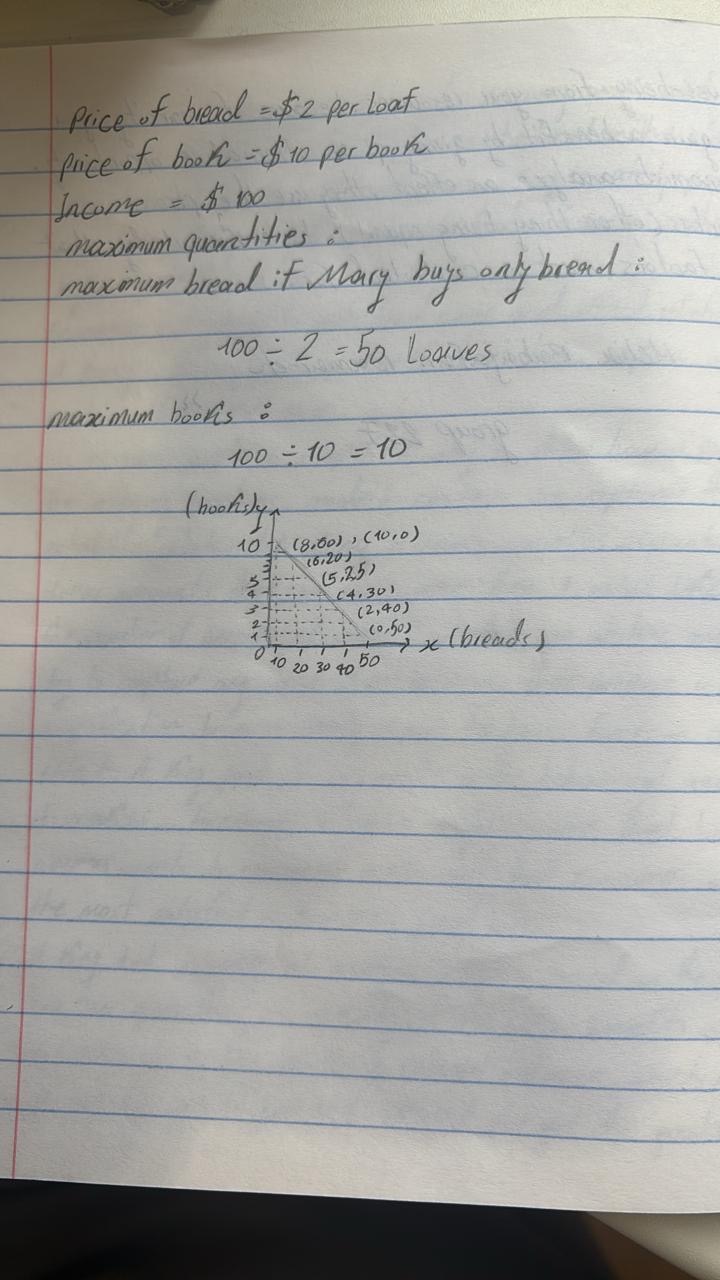 Price of bread = $ 2 per loaf
Price of book = $ 10 per book
Income = $ 100
maximum quantities :
maximum bread if Mary buys only bread :
100 ÷ 2 = 50 Loaves
maximum books :
100 ÷ 10 = 10
(books) y
10 (8,60) , (10,0)
(6,20)
5 (5,25)
4 (4,30)
3 (2,40)
2 (0,50)
1
0 10 20 30 40 50 x (breads)